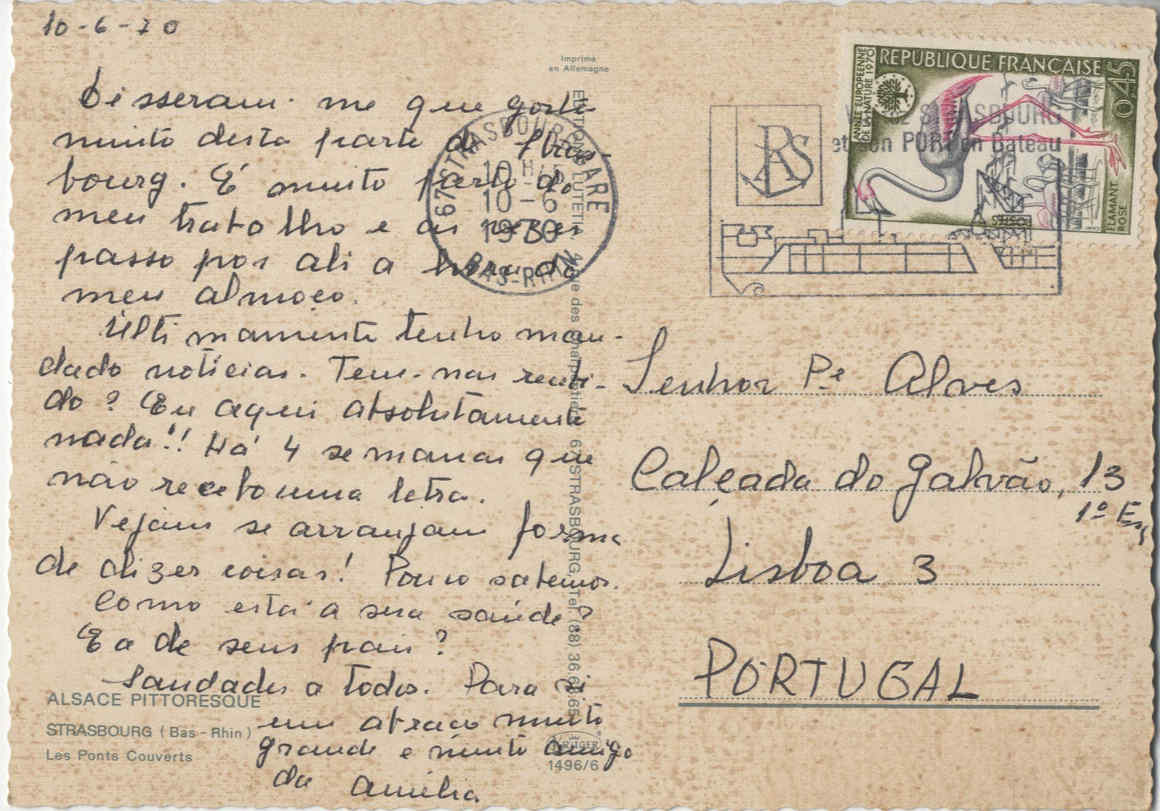 10-6-70
Disseram-me que gosta
muito desta parte de Stras
bourg. É muito perto do
meu trabalho e às vezes
passo por ali a hora do
meu almoço.
Ùltimamente tenho man-
dado notícias. Tem-nas recebi-
do? Eu aqui absolutamente
nada!! Há 4 semanas que
não recebo uma letra.
Vejam se arranjam forma
de dizer coisas! Pouco sabemos.
Como está a sua saúde?
E a de seus pais?
Saudades a todos. Para si
um abraço muito
grande e muito amigo
da Amélia
ALSACE PITTORESQUE
STRASBOURG (Bas-Rhin)
Les Ponts Couverts
Imprimé
en Allemagne
rue des Charpentiers, 67-STRASBOURG, Tel. (88) 36
KRÜGER
1496/6
67 STRASBOURG GARE
10 H
10-6
1970
BAS-RHIN
STRASBOURG
et son PORT en Bateau
RÉPUBLIQUE FRANÇAISE
0,45
ANNÉE EUROPÉENNE
DE LA NATURE 1970
FLAMANT
ROSE
Senhor Pe Alves
Calçada do Galvão, 13
1º Esq
Lisboa 3
PORTUGAL